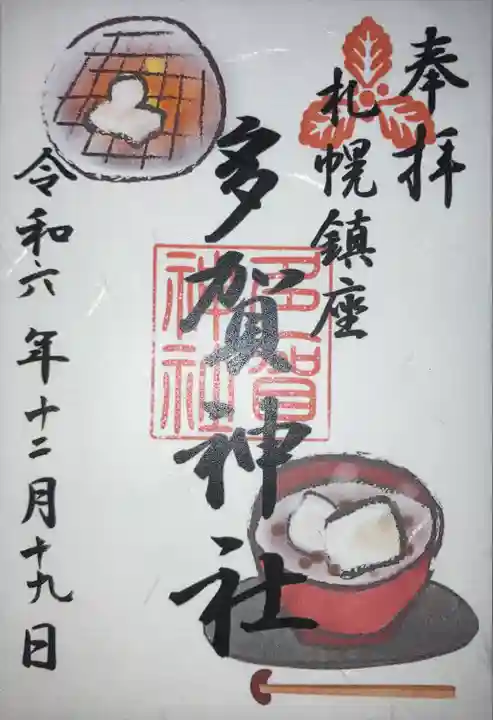 奉拝
札幌鎮座
多賀神社
多賀
神社
令和六年十二月十九日